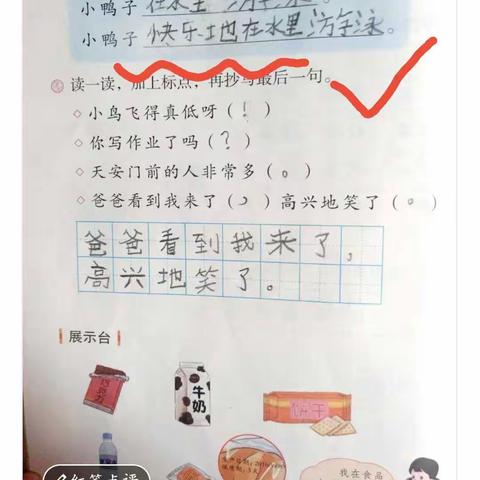 小鸭子在水里游泳。
小鸭子快乐地在水里游泳。
读一读，加上标点，再抄写最后一句。
◇小鸟飞得真低呀（！）
◇你写作业了吗（？）
◇天安门前的人非常多（。）
◇爸爸看到我来了（，）高兴地笑了（。）
爸爸看到我来了，
高兴地笑了。
展示台
巧克力
牛奶
饼干
红笔点评
我在食品